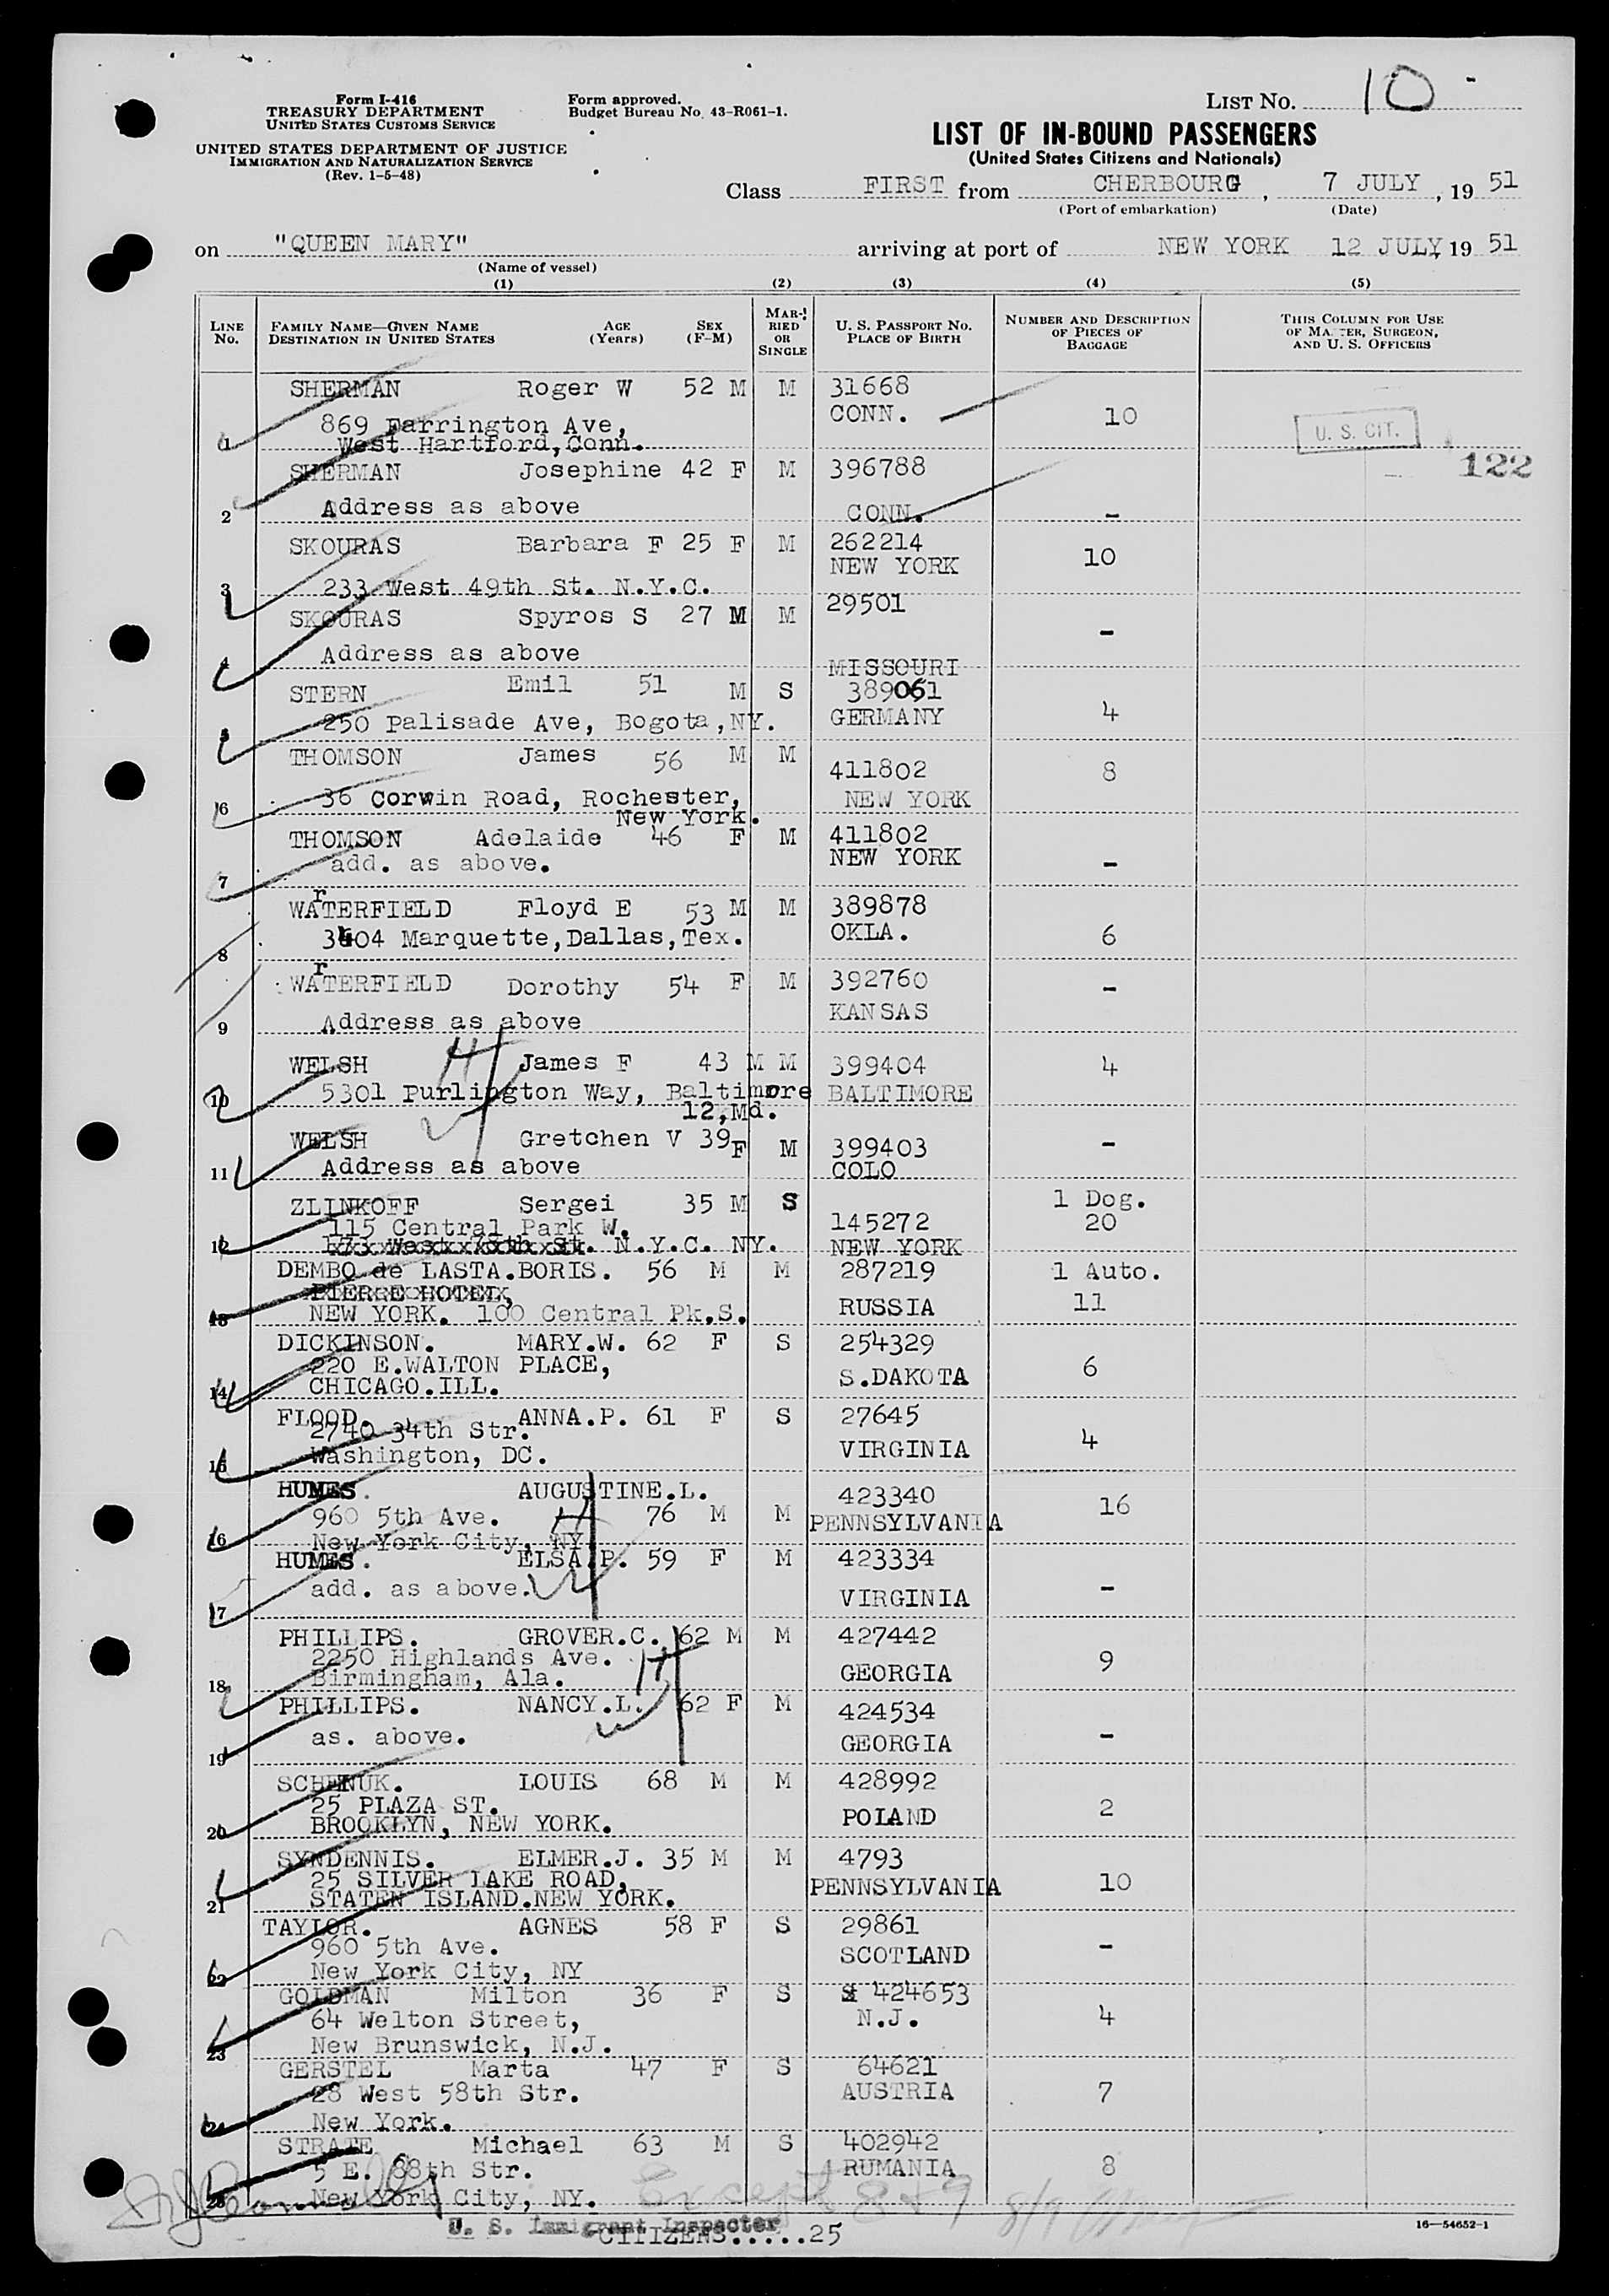 Form I-416
TREASURY DEPARTMENT
UNITED STATES CUSTOMS SERVICE
UNITED STATES DEPARTMENT OF JUSTICE
IMMIGRATION AND NATURALIZATION SERVICE
(Rev. 1-5-48)
Form approved.
Budget Bureau No. 43-R061-1.
LIST NO. 10
LIST OF IN-BOUND PASSENGERS
(United States Citizens and Nationals)
Class FIRST from CHERBOURG, 7 JULY, 19 51
(Port of embarkation) (Date)
on "QUEEN MARY" arriving at port of NEW YORK 12 JULY, 19 51
(Name of vessel)
(1) (2) (3) (4) (5)
LINE NO. FAMILY NAME—GIVEN NAME DESTINATION IN UNITED STATES AGE (Years) SEX (F-M) MARRIED OR SINGLE U. S. PASSPORT NO. PLACE OF BIRTH NUMBER AND DESCRIPTION OF PIECES OF BAGGAGE THIS COLUMN FOR USE OF MASTER, SURGEON, AND U. S. OFFICERS
SHERMAN Roger W 52 M M 31668
CONN. 10
869 Farrington Ave,
1 West Hartford, Conn.
U. S. CIT.
122
SHERMAN Josephine 42 F M 396788
2 Address as above CONN. -
SKOURAS Barbara F 25 F M 262214
NEW YORK 10
3 233 West 49th St. N.Y.C.
SKOURAS Spyros S 27 M M 29501
-
4 Address as above MISSOURI
STERN Emil 51 M S 389051
5 250 Palisade Ave, Bogota, NY. GERMANY 4
THOMSON James 56 M M 411802 8
6 36 Corwin Road, Rochester, NEW YORK
New York.
THOMSON Adelaide 46 F M 411802
7 add. as above. NEW YORK -
r
WATERFIELD Floyd E 53 M M 389878
8 3404 Marquette, Dallas, Tex. OKLA. 6
r
WATERFIELD Dorothy 54 F M 392760 -
9 Address as above KANSAS
WELSH James F 43 M M 399404 4
10 5301 Purlington Way, Baltimore BALTIMORE
12, Md.
WELSH Gretchen V 39 F M 399403 -
11 Address as above COLO
ZLINKOFF Sergei 35 M S 1 Dog.
115 Central Park W. 145272 20
12 N.Y.C. NY. NEW YORK
DEMBO de LASTA.BORIS. 56 M M 287219 1 Auto.
PIERRE HOTEL, RUSSIA 11
13 NEW YORK. 100 Central Pk.S.
DICKINSON. MARY.W. 62 F S 254329
220 E.WALTON PLACE, S.DAKOTA 6
14 CHICAGO.ILL.
FLOOD. ANNA.P. 61 F S 27645
2740 34th Str. VIRGINIA 4
15 Washington, DC.
HUMES. AUGUSTINE.L. 423340 16
960 5th Ave. 76 M M PENNSYLVANIA
16 New York City, NY
HUMES. ELSA.P. 59 F M 423334
add. as above. VIRGINIA -
17
PHILLIPS. GROVER.C. 62 M M 427442
2250 Highlands Ave. GEORGIA 9
18 Birmingham, Ala.
PHILLIPS. NANCY.L. 62 F M 424534
19 as. above. GEORGIA -
SCHENUK. LOUIS 68 M M 428992
25 PLAZA ST. POLAND 2
20 BROOKLYN, NEW YORK.
SYNDENNIS. ELMER.J. 35 M M 4793
25 SILVER LAKE ROAD, PENNSYLVANIA 10
21 STATEN ISLAND.NEW YORK.
TAYLOR. AGNES 58 F S 29861
960 5th Ave. SCOTLAND -
22 New York City, NY
GOLDMAN Milton 36 F S 424653
64 Welton Street, N.J. 4
23 New Brunswick, N.J.
GERSTEL Marta 47 F S 64621
28 West 58th Str. AUSTRIA 7
24 New York.
STRATE Michael 63 M S 402942
5 E. 88th Str. RUMANIA 8
25 New York City, NY.
Except 8 & 9 8/9
U. S. Immigrant Inspector
CITIZENS.....25
16—54652-1